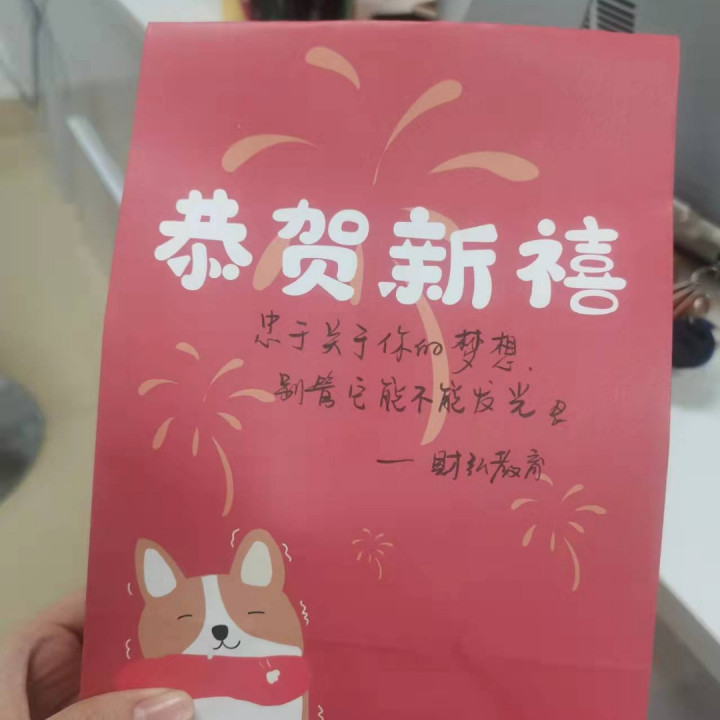 恭贺新禧
忠于关于你的梦想.
别管它能不能发光
一 财弘教育